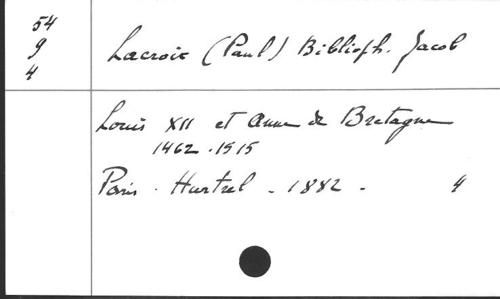 54
9
4
Lacroix (Paul) Biblioph. Jacob
Louis XII et Anne de Bretagne
1462.1515
Paris. Hurtrel - 1882 - 4